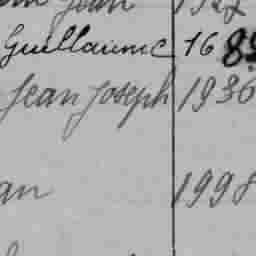 Jean 19
Guillaume 16 89
Jean Joseph 1936
an 1998